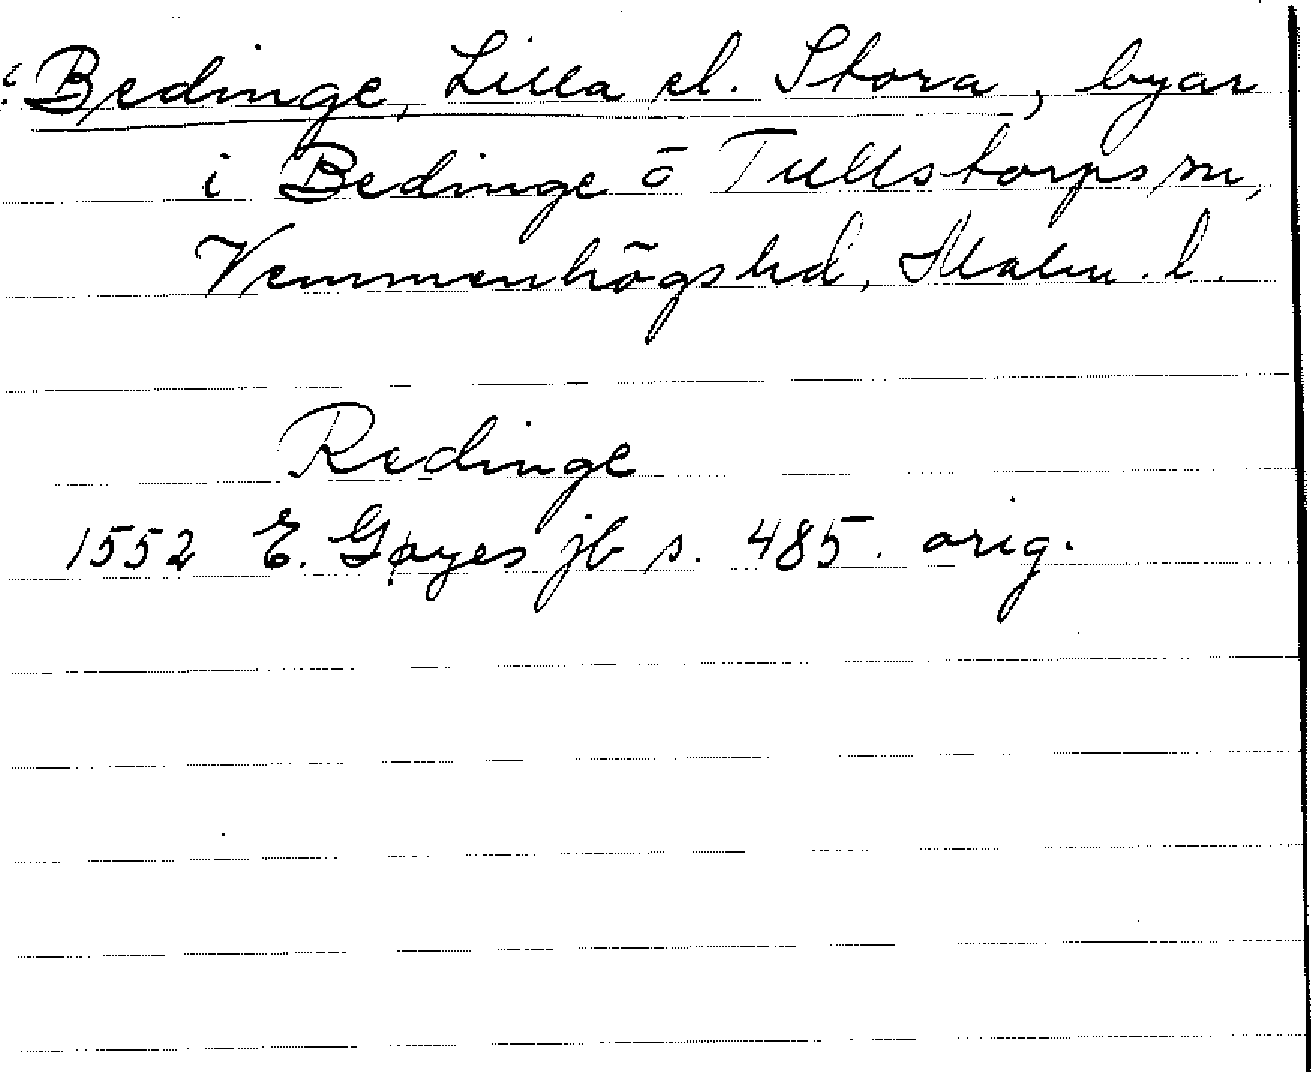 Bedinge, Lilla el. Stora, byar
i Bedinge o Tullstorps sn,
Vemmenhögs hd, Malm. l.
Redinge
1552 E. Gøyes jb s. 485. orig.